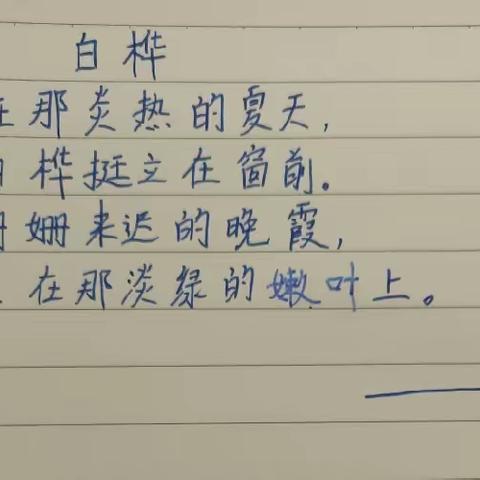 白桦
在那炎热的夏天,
白桦挺立在窗前。
姗姗来迟的晚霞,
在那淡绿的嫩叶上。